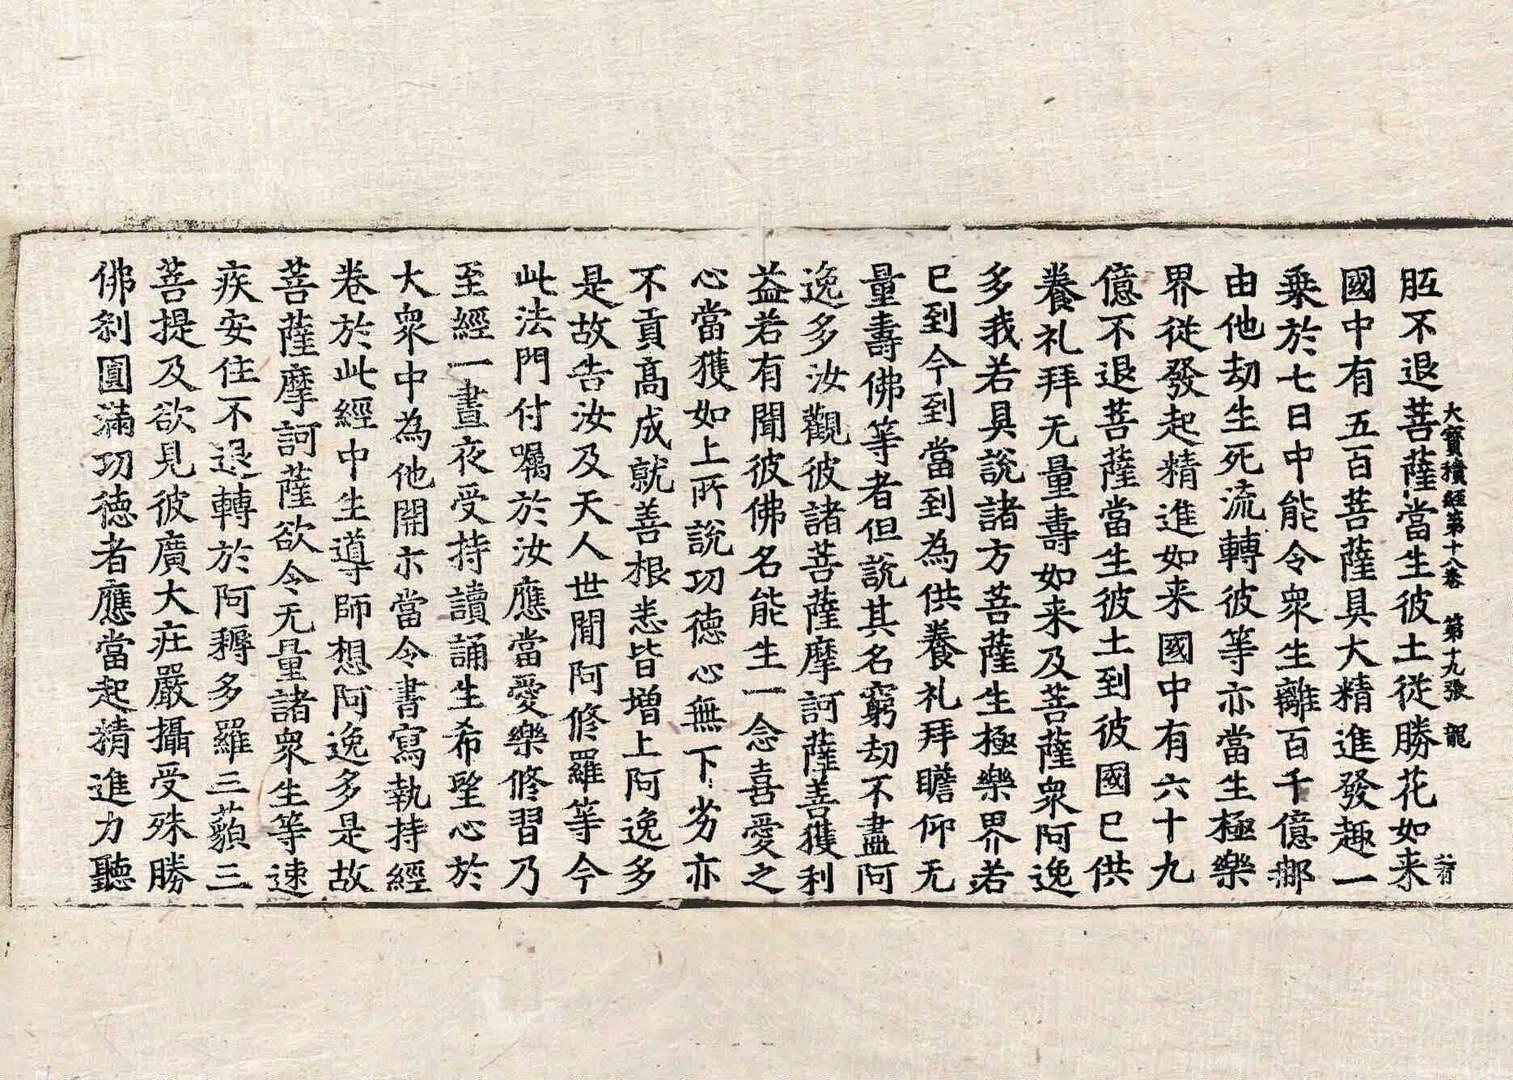 大寳積經第十八卷 第十九張 龍
胝不退菩薩當生彼土從勝花如来
國中有五百菩薩具大精進發趣一
乗於七日中能令衆生離百千億那
由他劫生死流轉彼等亦當生極樂
界從發起精進如来國中有六十九
億不退菩薩當生彼土到彼國已供
養礼拜无量壽如来及菩薩衆阿逸
多我若具說諸方菩薩生極樂界若
已到今到當到為供養礼拜瞻仰无
量壽佛等者但說其名窮劫不盡阿
逸多汝觀彼諸菩薩摩訶薩善獲利
益若有聞彼佛名能生一念喜愛之
心當獲如上所說功德心無下劣亦
不貢高成就善根悉皆增上阿逸多
是故告汝及天人世間阿修羅等今
此法門付囑於汝應當愛樂修習乃
至經一晝夜受持讀誦生希望心於
大衆中為他開示當令書寫執持經
卷於此經中生導師想阿逸多是故
菩薩摩訶薩欲令无量諸衆生等速
疾安住不退轉於阿耨多羅三藐三
菩提及欲見彼廣大莊嚴攝受殊勝
佛剎圓滿功德者應當起精進力聽